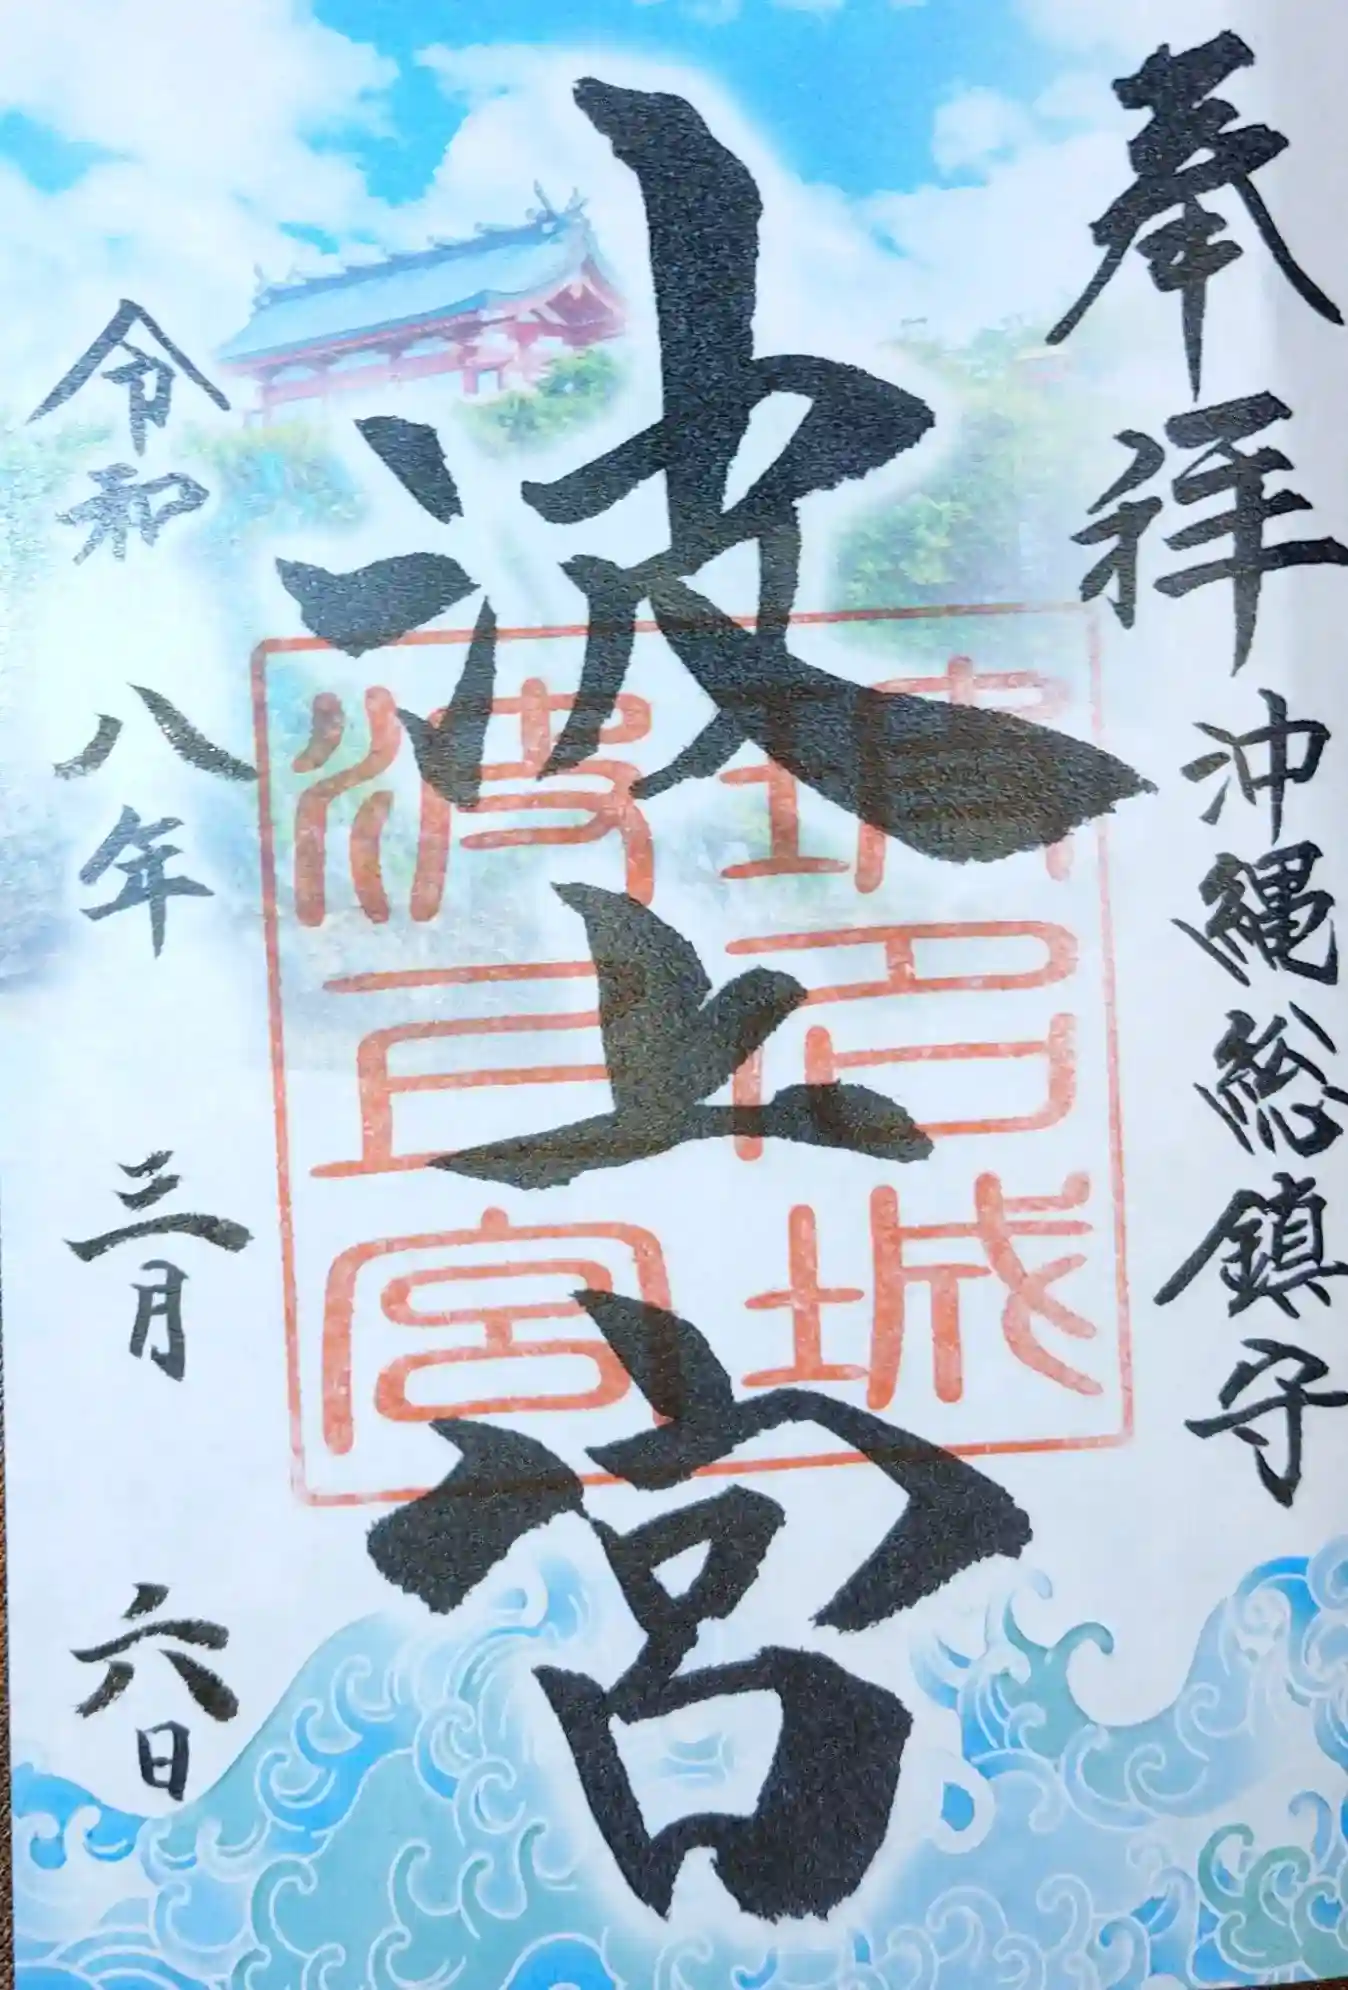 奉拝
沖縄総鎮守
波上宮
琉球城
波上宮
令和八年三月六日